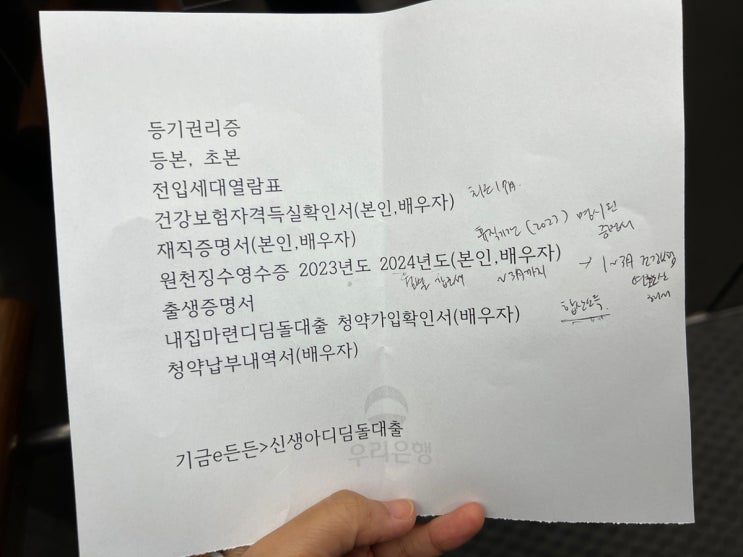 등기권리증
등본, 초본
전입세대열람표
건강보험자격득실확인서(본인,배우자)
최근 1개월
재직증명서(본인,배우자)
휴직기간 (2023) 명시된
증명서
원천징수영수증 2023년도 2024년도(본인,배우자)
월별 ~3月까지 → 1~3月 건강보험
출생증명서
합산소득
내집마련디딤돌대출 청약가입확인서(배우자)
청약납부내역서(배우자)
기금e든든>신생아디딤돌대출
우리은행